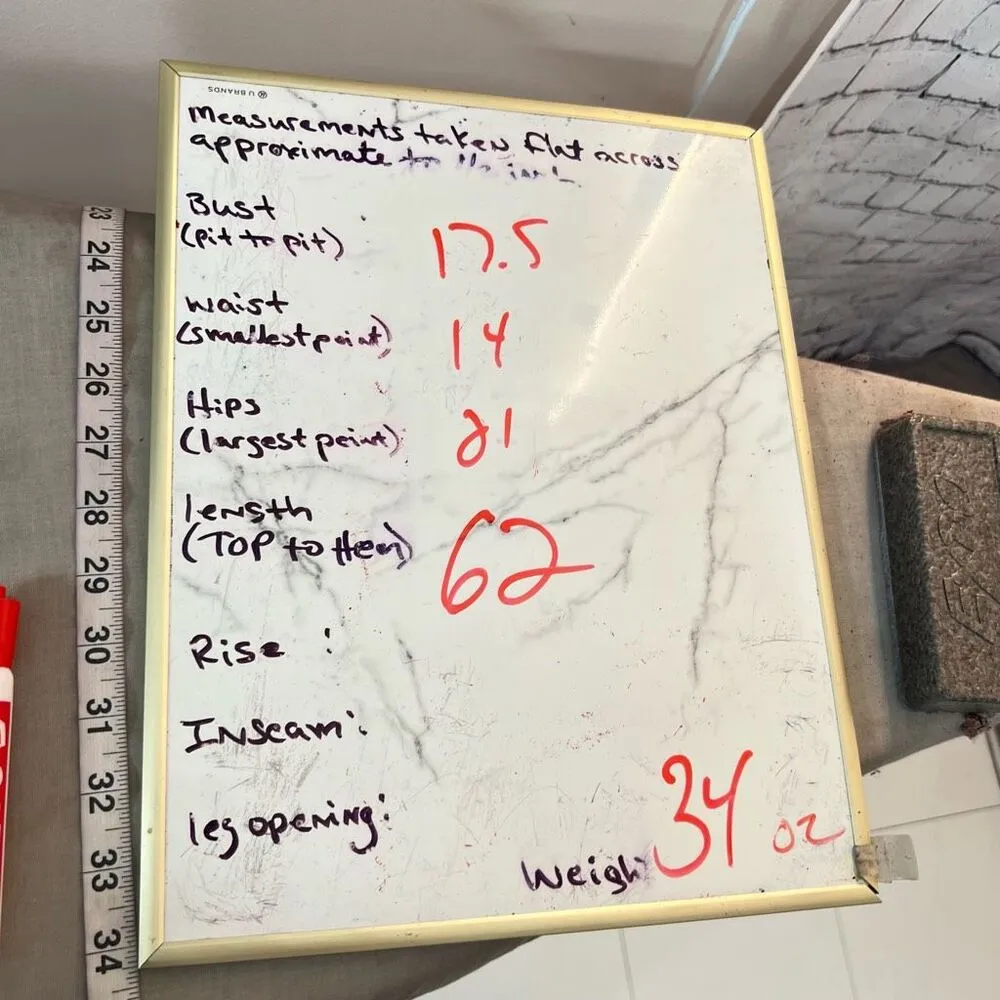 U BRANDS
Measurements taken flat across
approximate to the inch
Bust
(pit to pit) 17.5
waist
(smallest point) 14
Hips
(largest point) 21
length
(TOP to Hem) 62
Rise :
Inseam:
leg opening:
Weigh 34 oz
23
24
25
26
27
28
29
30
31
32
33
34